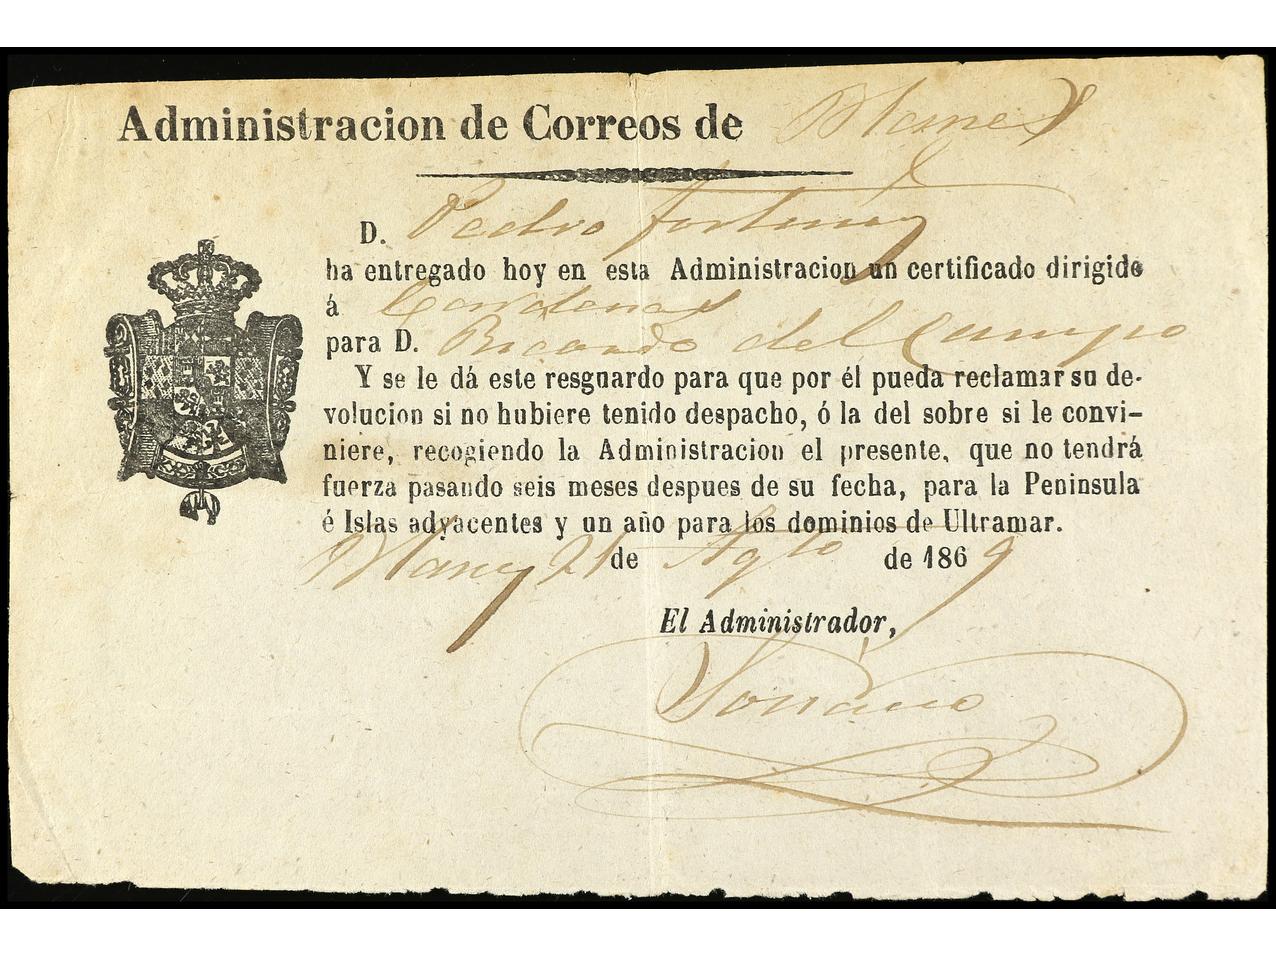 Administracion de Correos de Blanes
D. Pedro Fortuny
ha entregado hoy en esta Administracion un certificado dirigido
á Cardenas
para D. Ricardo del Campo
Y se le dá este resguardo para que por él pueda reclamar su de-
volucion si no hubiere tenido despacho, ó la del sobre si le convi-
niere, recogiendo la Administracion el presente, que no tendrá
fuerza pasando seis meses despues de su fecha, para la Peninsula
é Islas adyacentes y un año para los dominios de Ultramar.
Blanes 21 de Agto de 1869
El Administrador,
Soriano